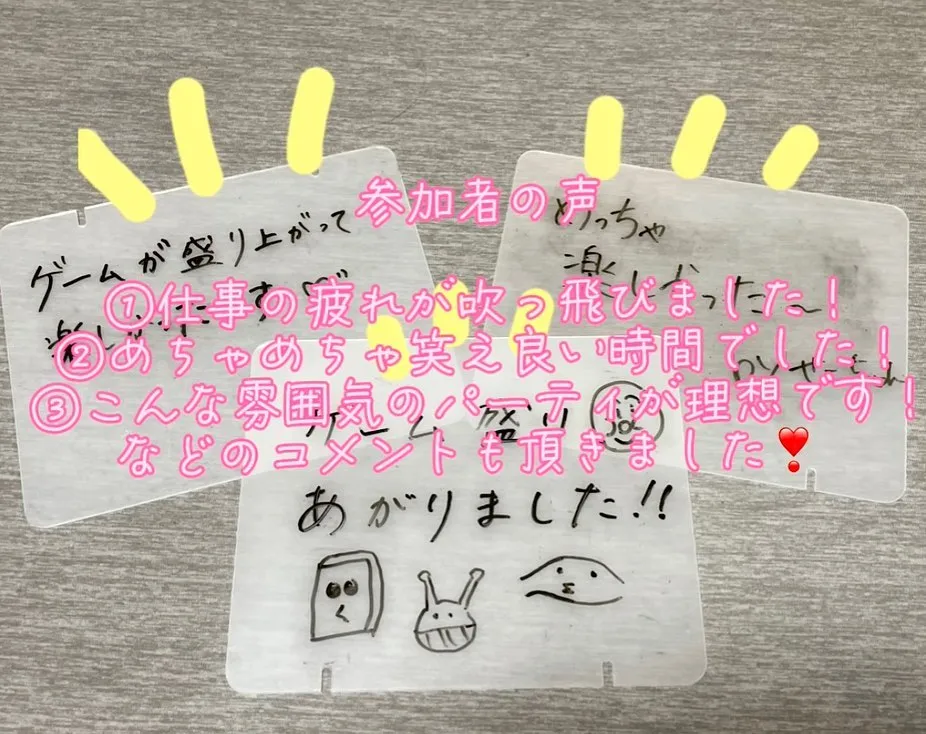 参加者の声
①仕事の疲れが吹っ飛びました！
②めちゃめちゃ笑え良い時間でした！
③こんな雰囲気のパーティが理想です！
などのコメントも頂きました❣
ゲームが盛り上がって
楽し
めっちゃ
楽しかったー
ゲーム 盛り
あがりました!!